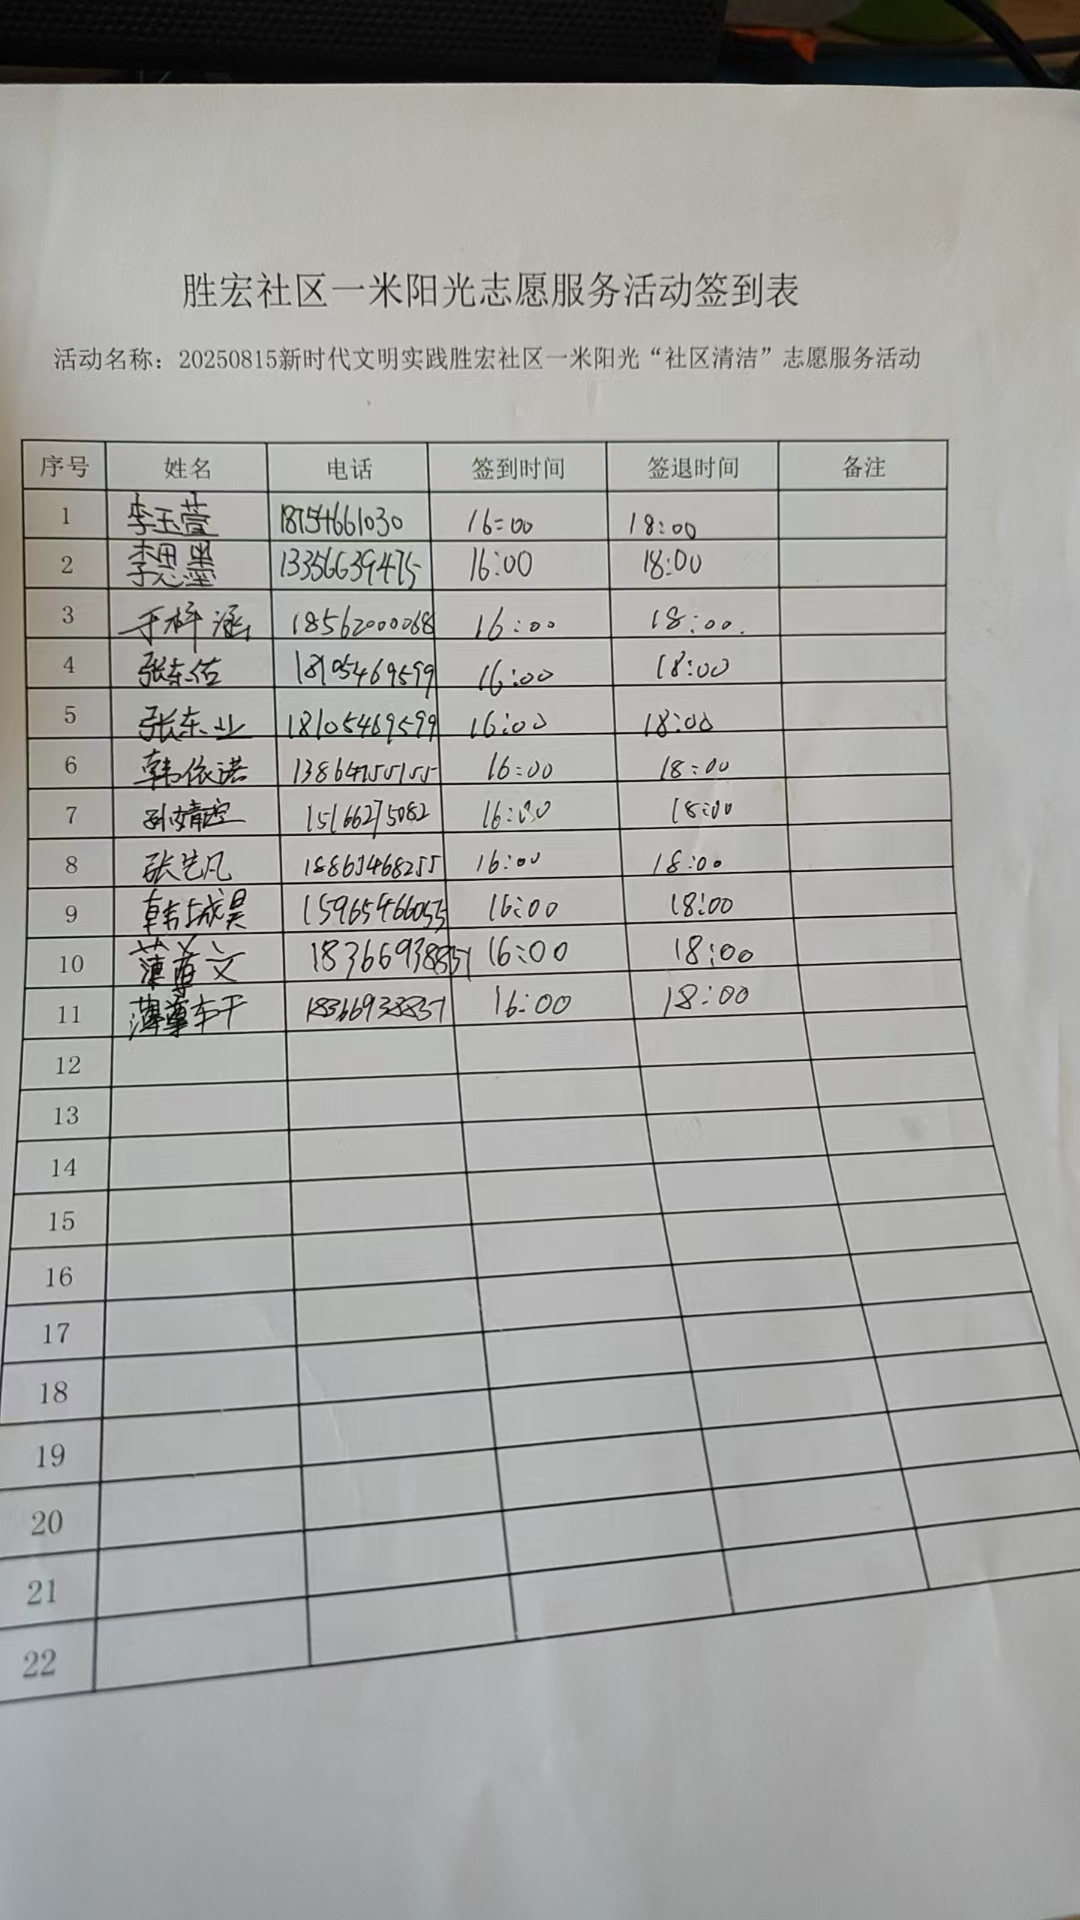 胜宏社区一米阳光志愿服务活动签到表
活动名称：20250815新时代文明实践胜宏社区一米阳光“社区清洁”志愿服务活动
序号 姓名 电话 签到时间 签退时间 备注
1 李玉萱 18754661030 16:00 18:00
2 李思墨 13356639475 16:00 18:00
3 于梓涵 18562000068 16:00 18:00.
4 张东佑 18105469599 16:00 18:00
5 张东业 18105469599 16:00 18:00
6 韩依诺 13864755155 16:00 18:00
7 孙婧 15166275082 16:00 18:00
8 张艺凡 18863468255 16:00 18:00
9 韩成昊 15965466055 16:00 18:00
10 薄尊文 18366938857 16:00 18:00
11 薄尊 18366938857 16:00 18:00
12
13
14
15
16
17
18
19
20
21
22